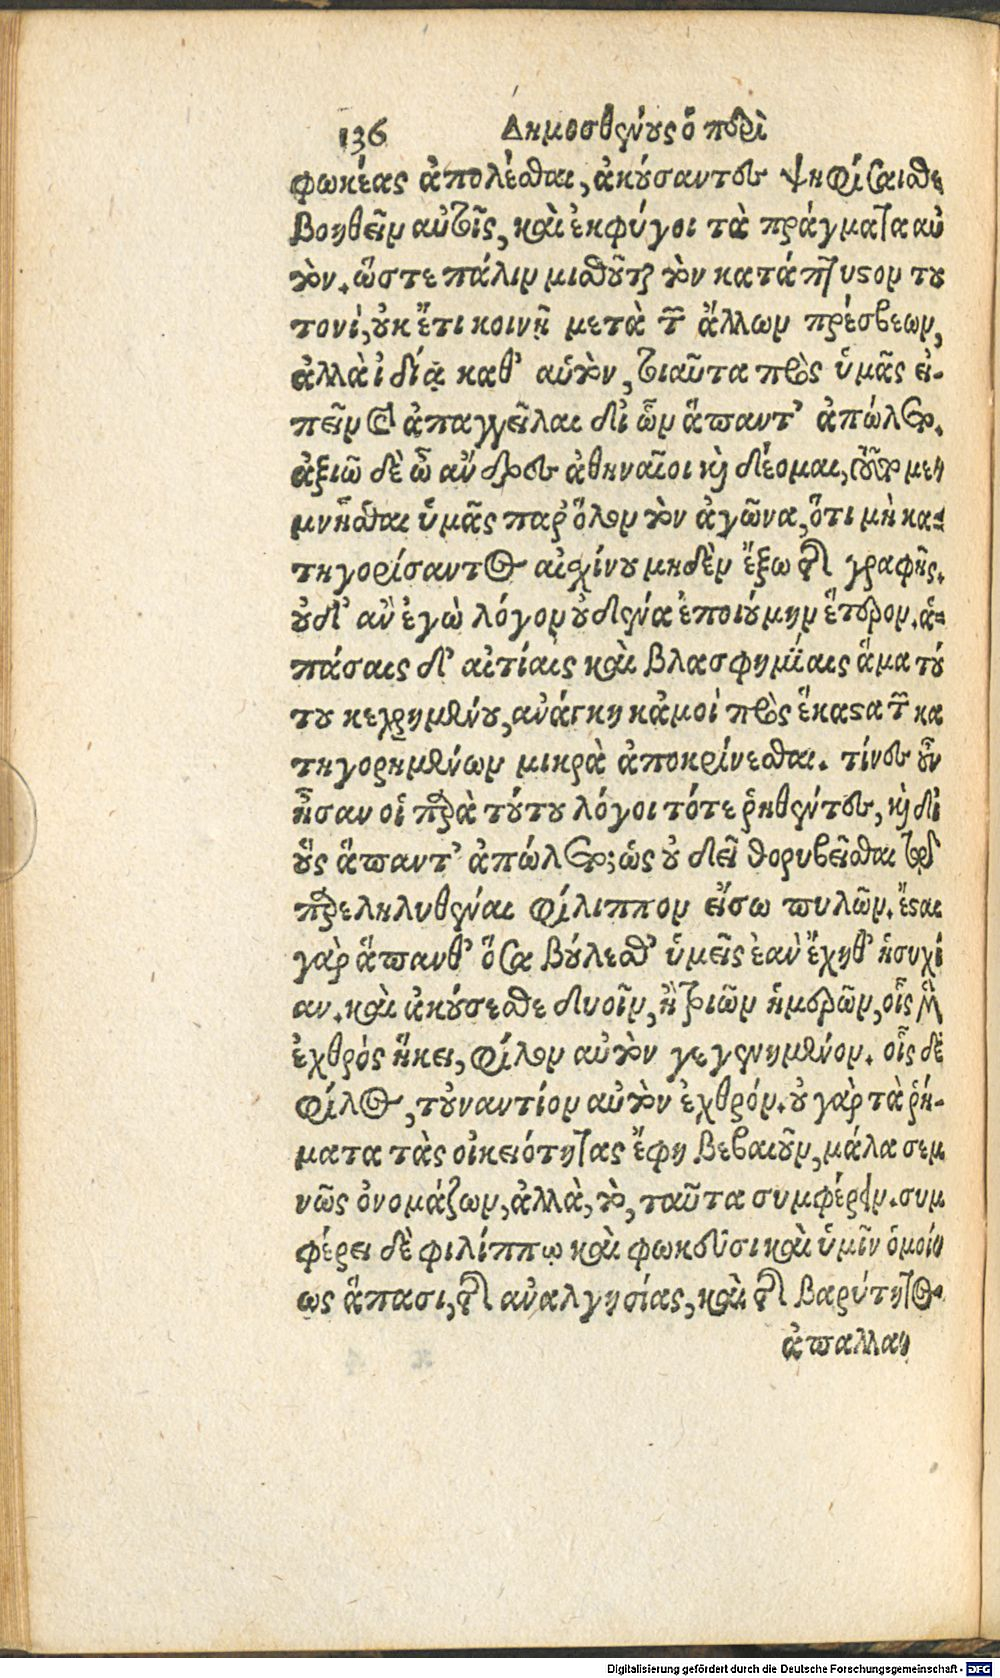 136 Δημοσθένους ὁ περὶ
φωκέας ἀπολέσθαι, ἀκούσαντες ψηφίσαισθε
βοηθεῖν αὐτοῖς, καὶ ἐκφύγοι τὰ πράγματα αὐ
τόν. ὥστε πάλιν μισθοῦται τὸν κατάπτυστον του
τονί, οὐκέτι κοινῇ μετὰ τῶν ἄλλων πρέσβεων,
ἀλλὰ ἰδίᾳ καθ’ αὑτὸν, τοιαῦτα πρὸς ὑμᾶς εἰ-
πεῖν καὶ ἀπαγγεῖλαι δι’ ὧν ἅπαντ’ ἀπώλετο.
ἀξιῶ δὲ ὦ ἄνδρες ἀθηναῖοι καὶ δέομαι, τοῦτο με
μνῆσθαι ὑμᾶς παρ’ ὅλον τὸν ἀγῶνα, ὅτι μὴ κα-
τηγορίσαντος αἰσχίνου μηδὲν ἔξω τῆς γραφῆς.
οὐδ’ ἂν ἐγὼ λόγον οὐδένα ἐποιούμην ἕτερον. ἁ-
πάσαις δ’ αἰτίαις καὶ βλασφημίαις ἅμα τού
του κεχρημένου, ἀνάγκη κἀμοὶ πρὸς ἕκαστα τῶν κα
τηγορημένων μικρὰ ἀποκρίνεσθαι. τίνες οὖν
ἦσαν οἱ παρὰ τούτου λόγοι τότε ῥηθέντες, καὶ δι’
οὓς ἅπαντ’ ἀπώλετο; ὡς οὐ δεῖ θορυβεῖσθαι τῷ
παρεληλυθέναι φίλιππον εἴσω πυλῶν. ἔσται
γὰρ ἅπανθ’ ὅσα βούλεσθ’ ὑμεῖς ἐὰν ἔχηθ’ ἡσυχί
αν. καὶ ἀκούσεσθε δυοῖν, ἢ τριῶν ἡμερῶν, οἷς μὲν
ἐχθρὸς ἥκει, φίλον αὐτὸν γεγενημένον. οἷς δὲ
φίλος, τοὐναντίον αὐτὸν ἐχθρόν. οὐ γὰρ τὰ ῥή-
ματα τὰς οἰκειότητας ἔφη βεβαιοῦν, μάλα σεμ
νῶς ὀνομάζων, ἀλλὰ, τὸ, ταῦτα συμφέρειν. συμ
φέρει δὲ φιλίππῳ καὶ φωκεῦσι καὶ ὑμῖν ὁμοί
ως ἅπασι, τῆς ἀναλγησίας, καὶ τῆς βαρύτητος
ἀπαλλα
Digitalisierung gefördert durch die Deutsche Forschungsgemeinschaft - DFG